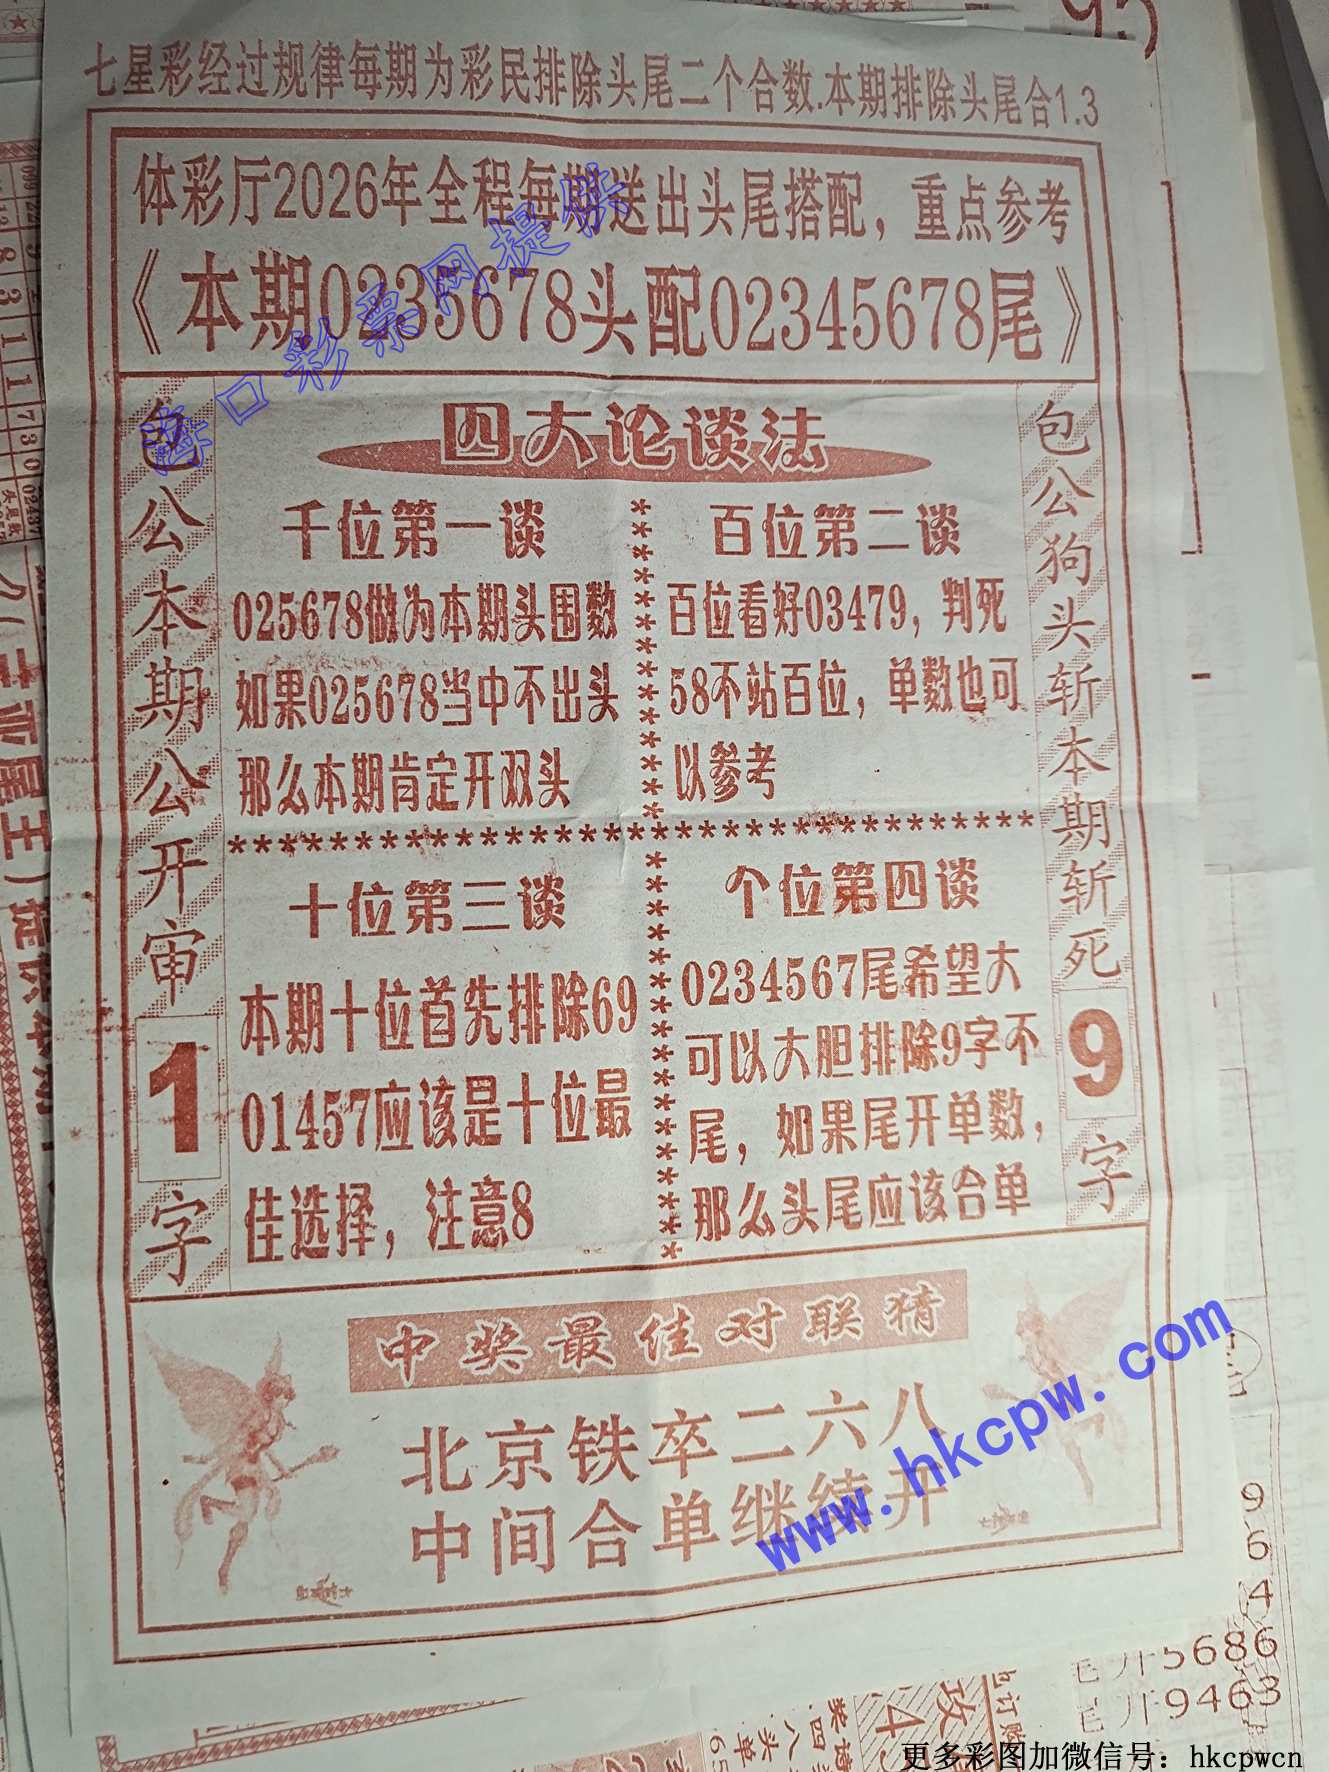 七星彩经过规律每期为彩民排除头尾二个合数.本期排除头尾合1.3
体彩厅2026年全程每期送出头尾搭配，重点参考
《本期0235678头配02345678尾》
海口彩票网提供
包公本期公开审1字
四大论谈法
千位第一谈
025678做为本期头围数
如果025678当中不出头
那么本期肯定开双头
百位第二谈
百位看好03479，判死
58不站百位，单数也可
以参考
十位第三谈
本期十位首先排除69
01457应该是十位最
佳选择，注意8
个位第四谈
0234567尾希望大
可以大胆排除9字不
尾，如果尾开单数，
那么头尾应该合单
包公狗头斩本期斩死9字
中奖最佳对联猜
北京铁卒二六八
中间合单继续开
www.hkcpw.com
9
6
4
5686
9463
更多彩图加微信号：hkcpwcn